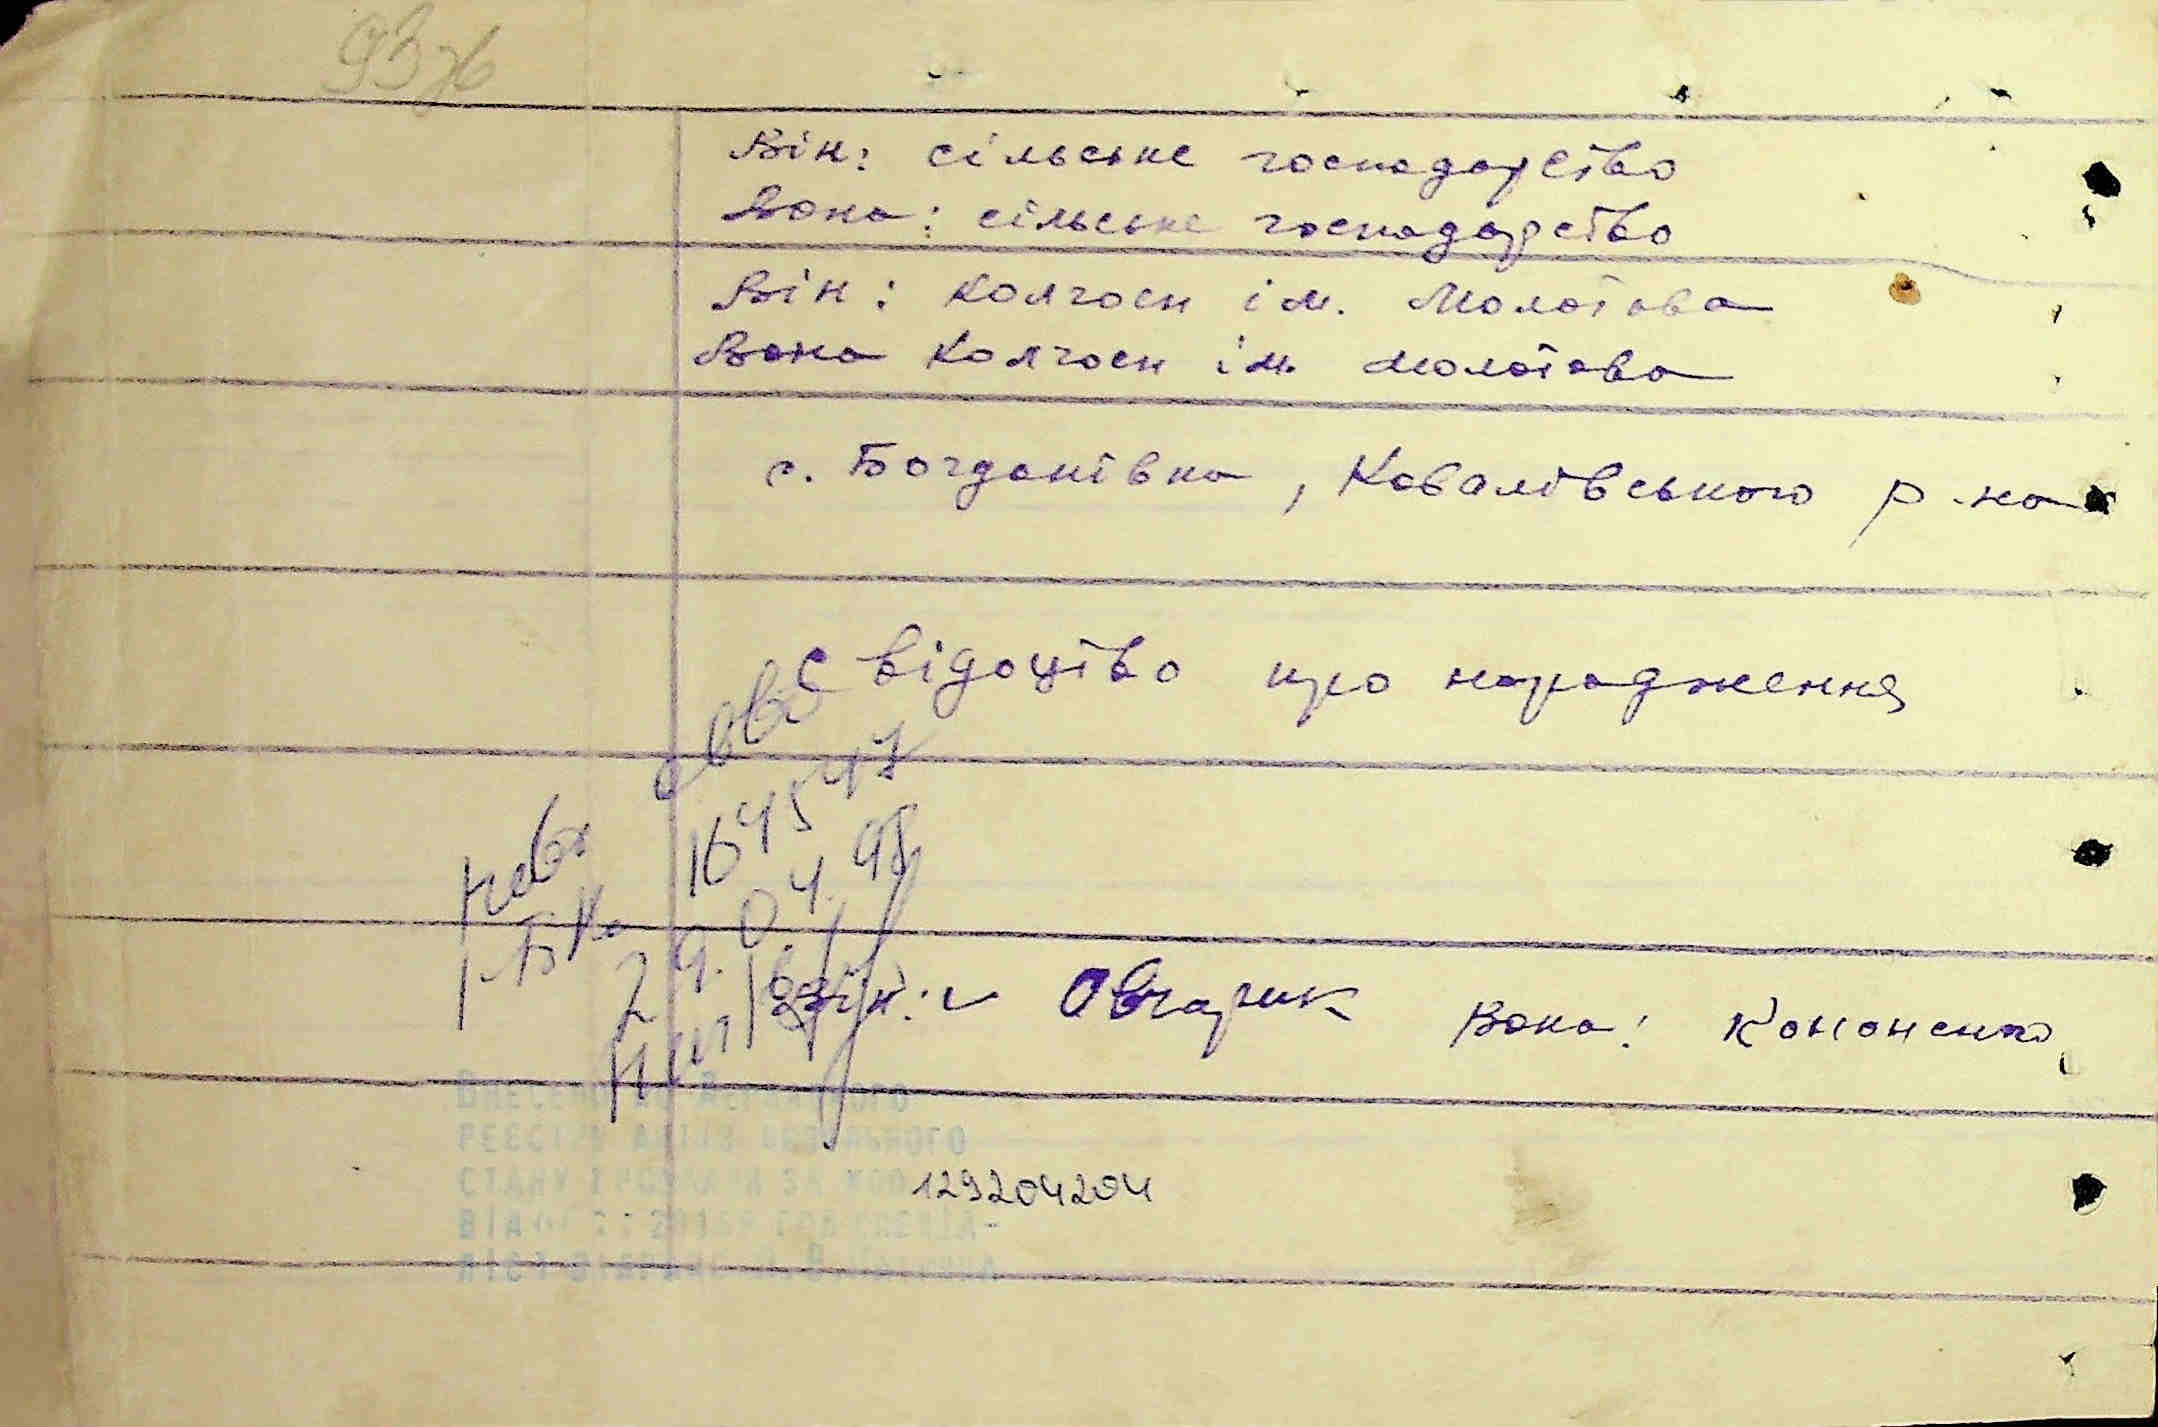 Він: сільське господарство
Вона: сільське господарство
Він: колгосп ім. Молотова
Вона колгосп ім. Молотова
с. Богданівка, Ковалівського р-на
Свідоцтво про народження
164547
29.04.98
Він: Овчарик Вона: Кононенко
Внесено до Державного
реєстру актів цивільного
стану громадян за
129204204